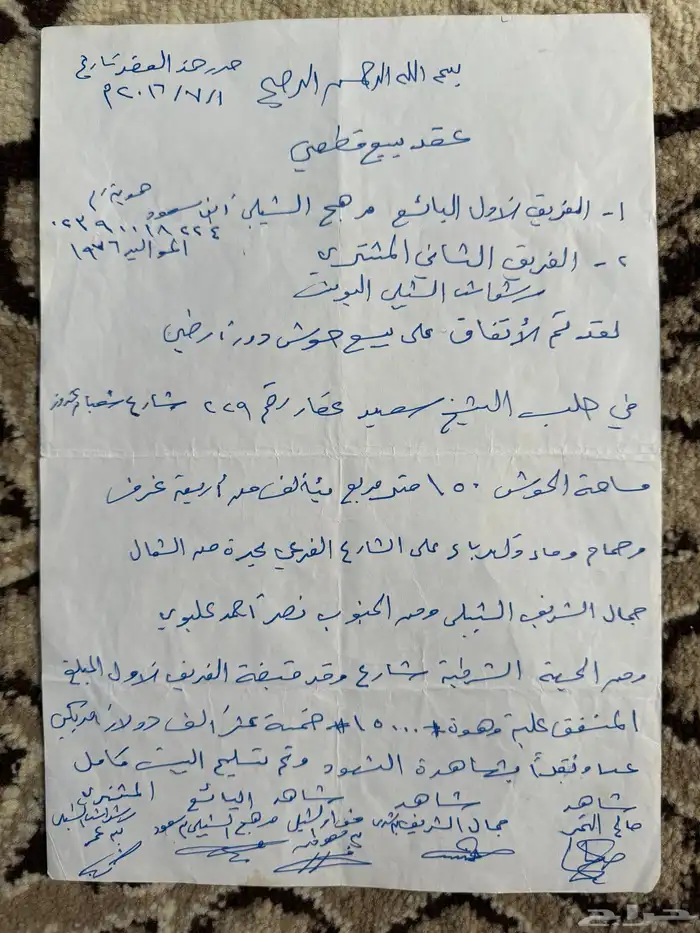 بسم الله الرحمن الرحيم
حرر هذا العقد بتاريخ
٢٠١٦/٧/١م
عقد بيع قطعي
١- الفريق الأول البائع مرهج الشبلي ابن سعود هوية رقم
٠٢٣٩٠٠١٨٢٢٤
المواليد ١٩٧٦
٢- الفريق الثاني المشتري
الشبلي
لقد تم الأتفاق على بيع حوش دور أرضي
في حلب الشيخ سعيد عقار رقم ٢٢٩ شارع
مساحة الحوش ١٥٠ متر مربع يتألف من أربعة غرف
وحمام وماء وكهرباء على الشارع الفرعي يحيرة من الشمال
جمال الشريف الشبلي ومن الجنوب نصر أحمد عليوي
ومن الجهة الشرقية شارع وقد قبضة الفريق الأول المبلغ
المتفق عليه وهوة #١٥٠٠٠# خمسة عشر ألف دولار امريكي
عدا ونقداً بشاهدة الشهود وتم تسليم البيت كامل
شاهد شاهد شاهد البائع المشتري
صالح جمال الشريف الشبلي مرهج الشبلي سعود
حراج